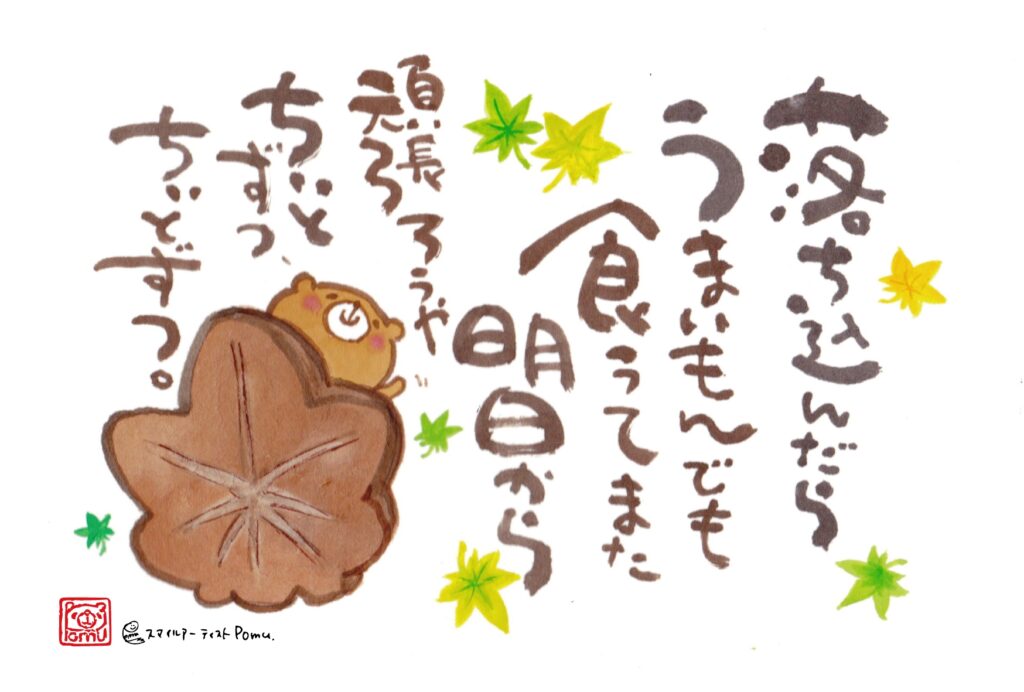 落ち込んだら
うまいもんでも
食うてまた
明日から
頑張ろうや
ちいと
ずつ、
ちいとずつ。
Pomu
スマイルアーティスト Pomu.